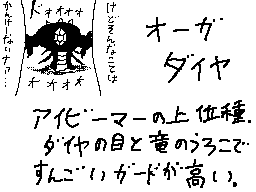 オーガ
ダイヤ
けどそんなことは
ド
オオオオ
オオオオ
かんけーないナァ…
アイビーマーの上位種.
ダイヤの目と竜のうろこで
すんごいガードが高い。